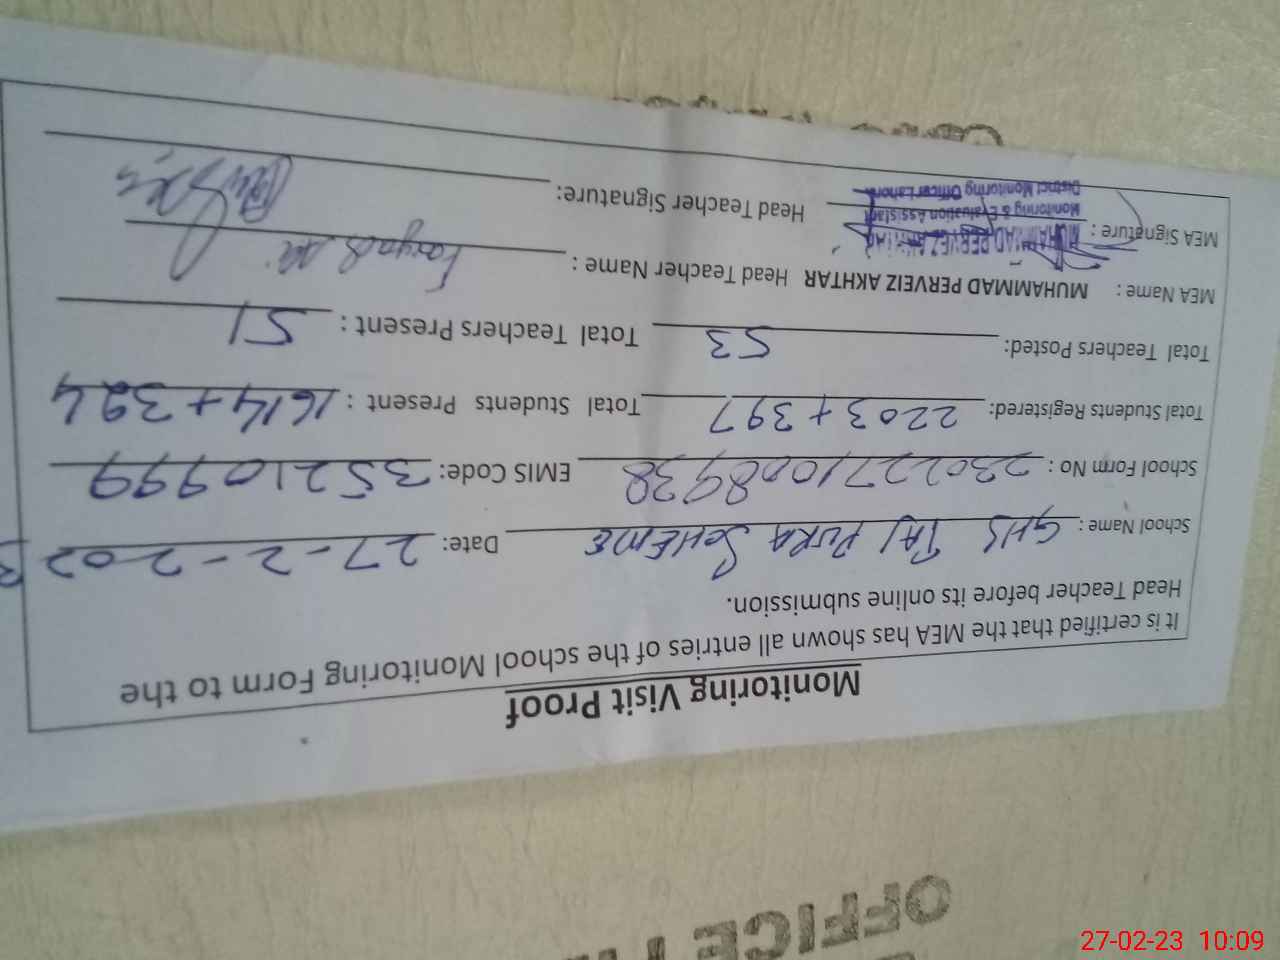 Monitoring Visit Proof
It is certified that the MEA has shown all entries of the school Monitoring Form to the
Head Teacher before its online submission.
School Name : GHS TAJ PURA SCHEME Date: 27-2-2023
School Form No : 2302271008938 EMIS Code: 35210999
Total Students Registered: 2203 + 397 Total Students Present : 1614 + 324
Total Teachers Posted: 53 Total Teachers Present : 51
MEA Name : MUHAMMAD PERVEIZ AKHTAR Head Teacher Name :
MEA Signature : Head Teacher Signature:
MUHAMMAD PERVEZ AKHTAR
Monitoring & Evaluation Assistant
District Monitoring Officer Lahore
OFFICE
27-02-23 10:09